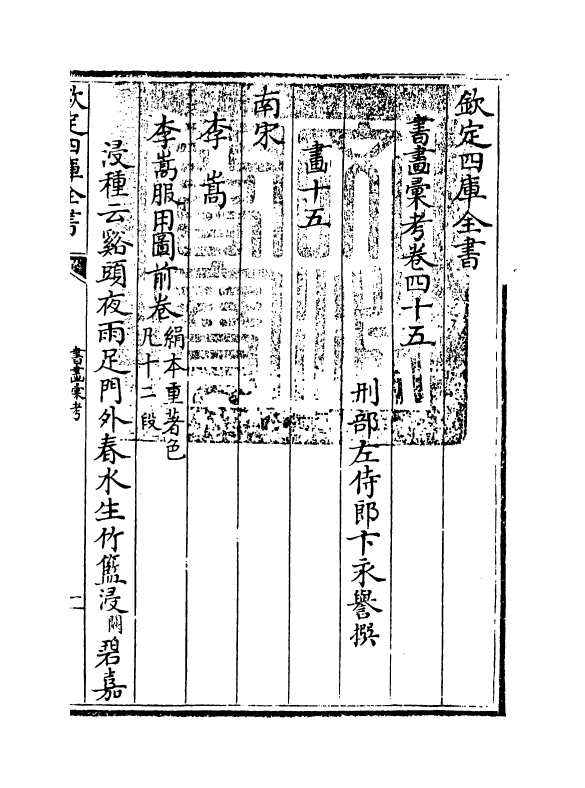 欽定四庫全書
書畫彙考卷四十五
刑部左侍郎卞永譽撰
畫十五
南宋
李嵩
李嵩服用圖前卷絹本重著色凡十二段
浸種云谿頭夜雨足門外春水生竹籃浸闕碧嘉
欽定四庫全書
書畫彙考
一